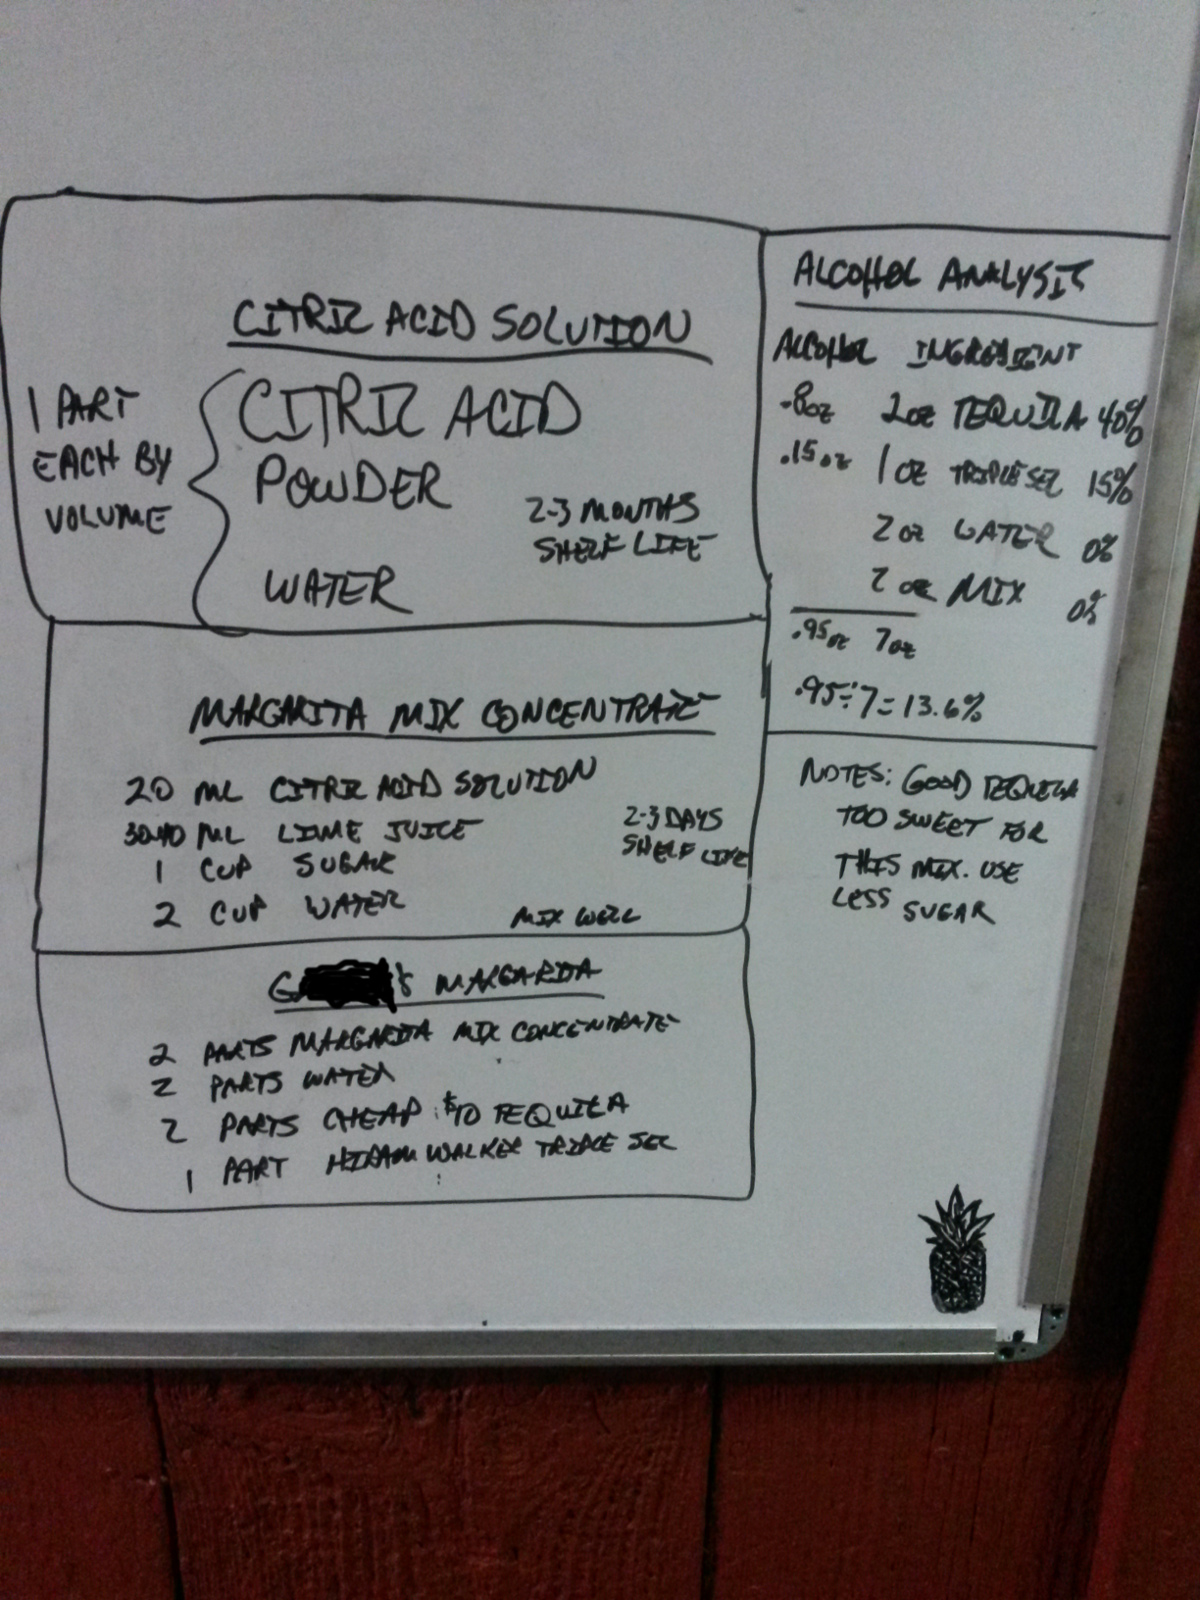 CITRIC ACID SOLUTION
1 PART
EACH BY
VOLUME
CITRIC ACID
POWDER
WATER
2-3 MONTHS
SHELF LIFE
MARGARITA MIX CONCENTRATE
20 ML CITRIC ACID SOLUTION
30-40 ML LIME JUICE
1 CUP SUGAR
2 CUP WATER
2-3 DAYS
SHELF LIFE
MIX WELL
MARGARITA
2 PARTS MARGARITA MIX CONCENTRATE
2 PARTS WATER
2 PARTS CHEAP $10 TEQUILA
1 PART HIRAM WALKER TRIPLE SEC
ALCOHOL ANALYSIS
ALCOHOL INGREDIENT
.8oz 2oz TEQUILA 40%
.15oz 1 oz TRIPLE SEC 15%
2 oz WATER 0%
2 oz MIX 0%
.95oz 7oz
.95÷7=13.6%
NOTES: GOOD TEQUILA
TOO SWEET FOR
THIS MIX. USE
LESS SUGAR